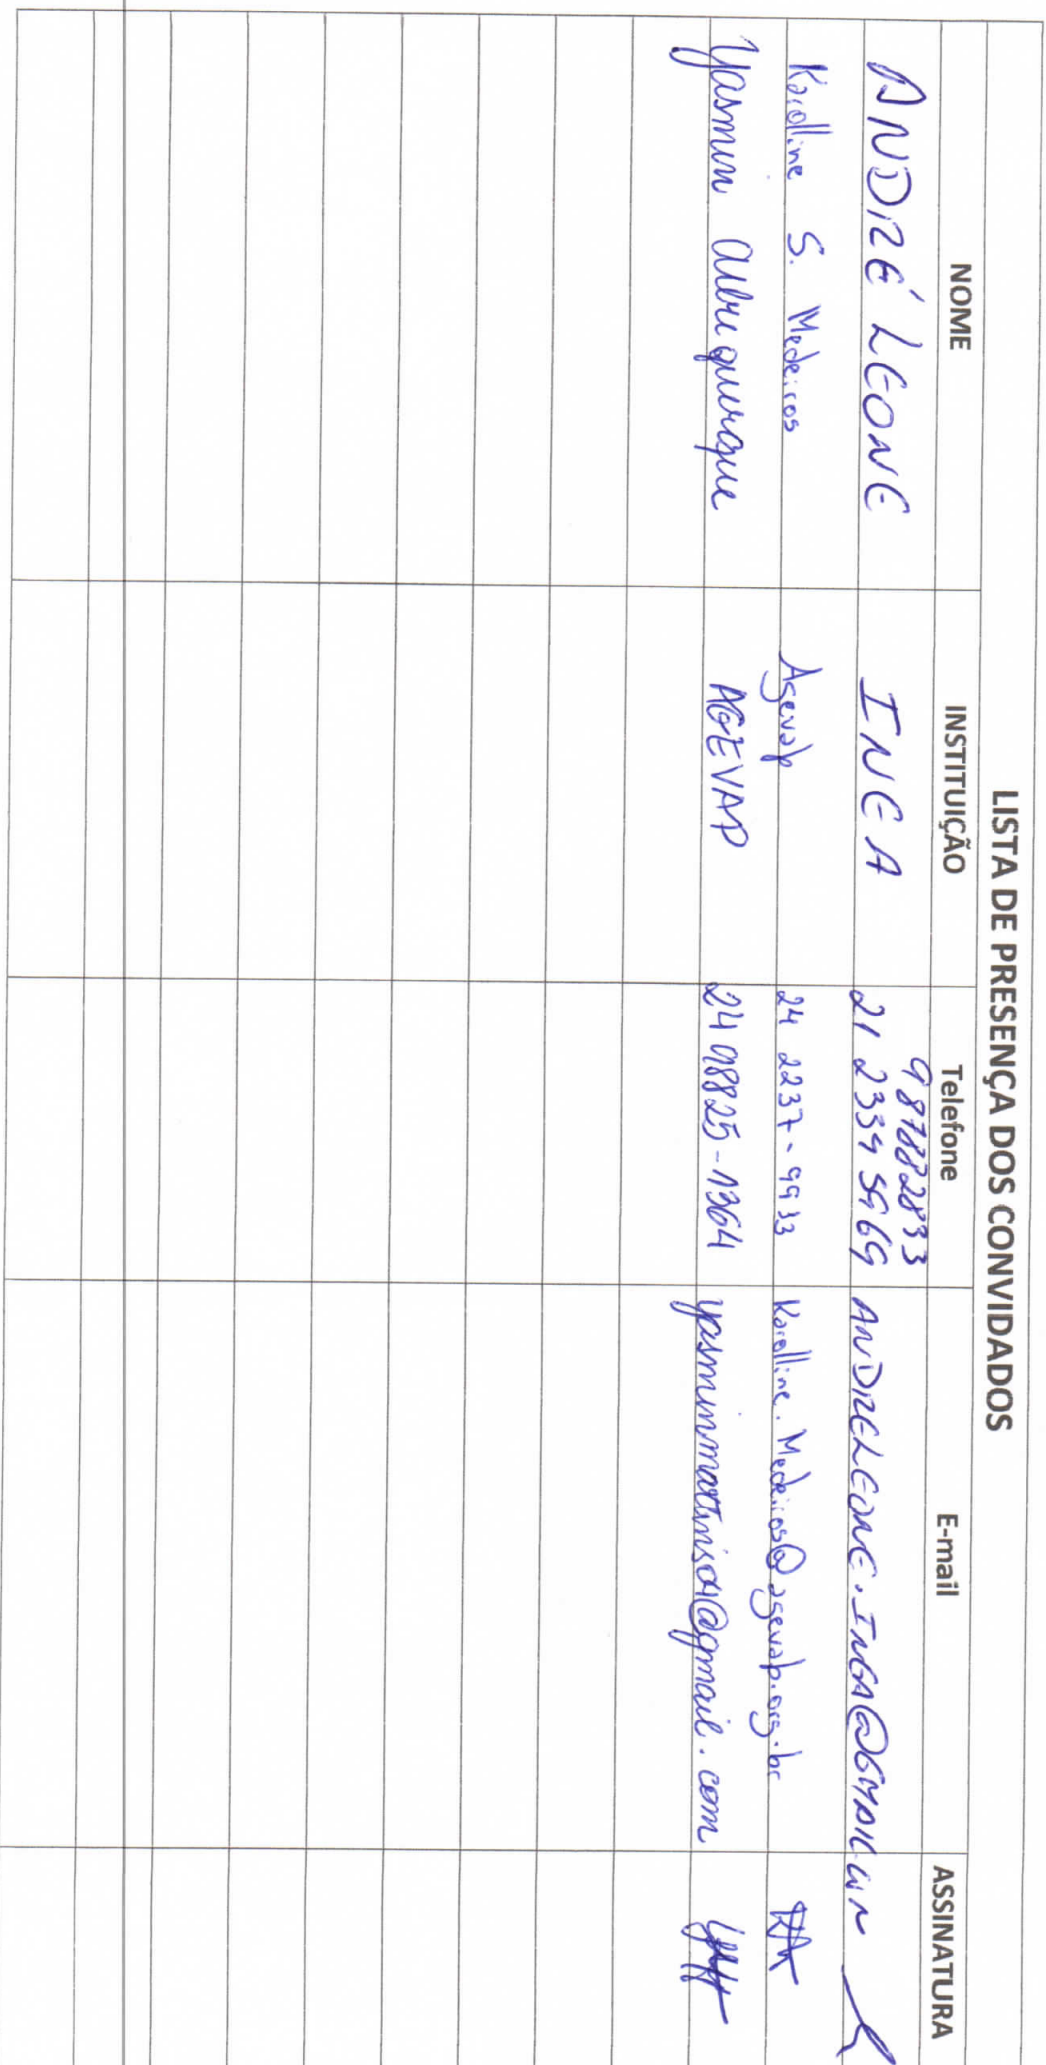 LISTA DE PRESENÇA DOS CONVIDADOS
NOME INSTITUIÇÃO Telefone E-mail ASSINATURA
987882833
ANDRÉ LEONE INEA 21 2334 5969 ANDRELEONE.INEA@GMAIL.COM
Karolline S. Medeiros Agevap 24 2237-9933 Karolline.Medeiros@agevap.org.br
Yasmin Albuquerque AGEVAP 24 98825-1364 yasminmartins01@gmail.com